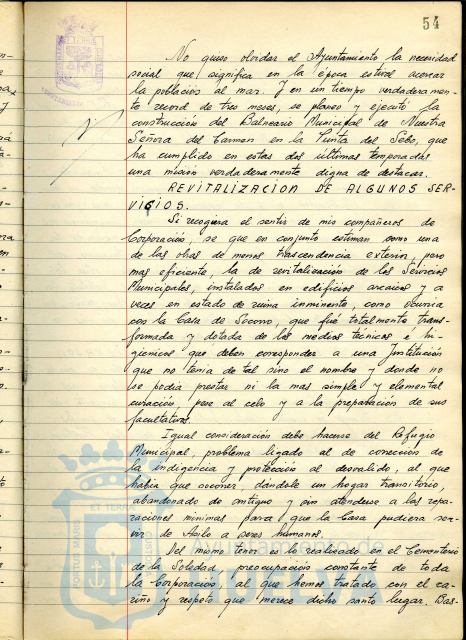 54
No quiso olvidar el Ayuntamiento la necesidad
social que significa en la época estival acercar
la población al mar. Y en un tiempo verdaderamen-
te record de tres meses, se planeó y ejecutó la
construcción del Balneario Municipal de Nuestra
Señora del Carmen en la Punta del Sebo, que
ha cumplido en estas dos últimas temporadas
una misión verdaderamente digna de destacar.
REVITALIZACION DE ALGUNOS SER-
VICIOS.
Si recogiera el sentir de mis compañeros de
Corporación se que en conjunto estiman como una
de las obras de menos trascendencia exterior, pero
mas eficiente, la de revitalización de los Servicios
Municipales, instalados en edificios arcaicos y a
veces en estado de ruina inminente, como ocurria
con la Casa de Socorro, que fué totalmente trans-
formada y dotada de los medios técnicos é hi-
gienicos que deben corresponder a una Institución
que no tenia de tal sino el nombre y donde no
se podia prestar ni la mas simple y elemental
curación, pese al celo y a la preparación de sus
facultativos.
Igual consideración debe hacerse del Refugio
Municipal, problema ligado al de corrección de
la indigencia y protección al desvalido, al que
había que socorrer, dándole un hogar transitorio,
abandonado de antiguo y sin atenderse a las repa-
raciones mínimas para que la Casa pudiera ser-
vir de Asilo a seres humanos.
Del mismo tenor es lo realizado en el Cementerio
de la Soledad, preocupación constante de toda
la Corporación, al que hemos tratado con el ca-
riño y respeto que merece dicho santo lugar. Bas-
Ayuntamiento de
HUELVA